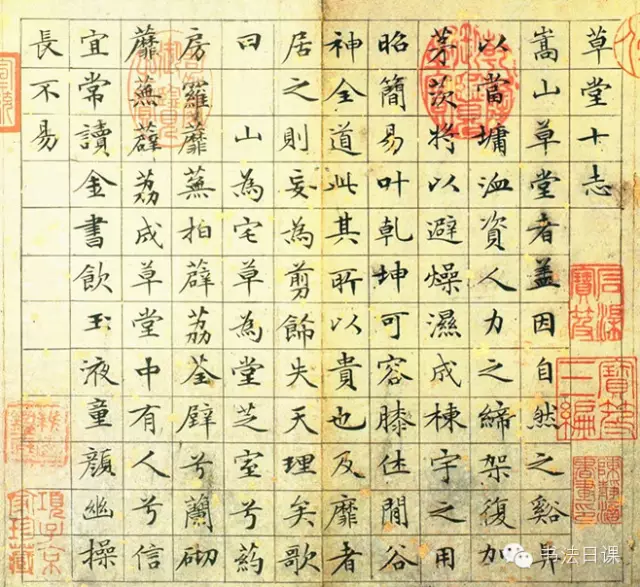 草堂十志
嵩山草堂者盖因自然之谿阜
以當墉洫資人力之締架復加
茅茨将以避燥濕成棟宇之用
昭簡易叶乾坤可容膝休閒谷
神全道此其所以貴也及靡者
居之則妄為剪飾失天理矣歌
曰 山為宅草為堂芝室兮葯
房羅蘼蕪拍薜荔荃壁兮蘭砌
蘼蕪薜荔成草堂中有人兮信
宜常讀金書飲玉液童顏幽操
長不易
項子京家珍藏
书法日课